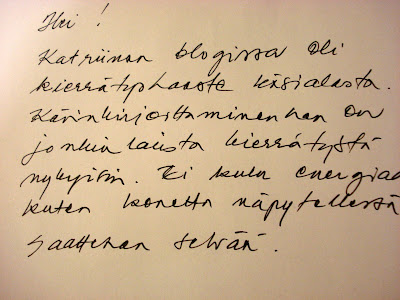 Hei !
Katriinan blogissa oli
kierrätyshaaste käsialasta.
Käsinkirjoittaminenhan on
jonkinlaista kierrätystä
nykyisin. Ei kulu energiaa
kuten konetta näpytellessä
Saattehan selvää.